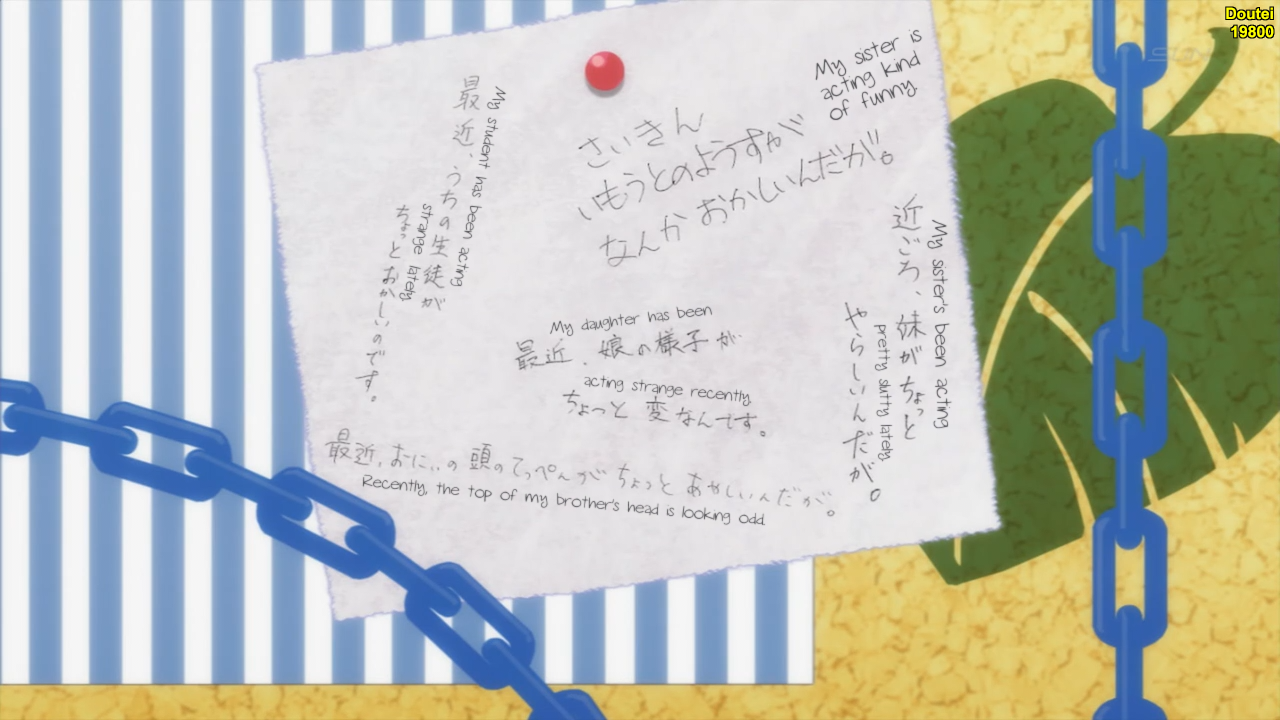 Doutei
19800
My sister is
acting kind
of funny
さいきん
いもうとのようすが
なんか おかしいんだが。
最近、うちの生徒が
ちょっと おかしいのです。
My student has been acting
strange lately
近ごろ、妹がちょっと
やらしいんだが。
My sister's been acting
pretty slutty lately
My daughter has been
最近、娘の様子が
acting strange recently
ちょっと 変なんです。
最近、おにいの頭のてっぺんがちょっと おかしいんだが。
Recently, the top of my brother's head is looking odd